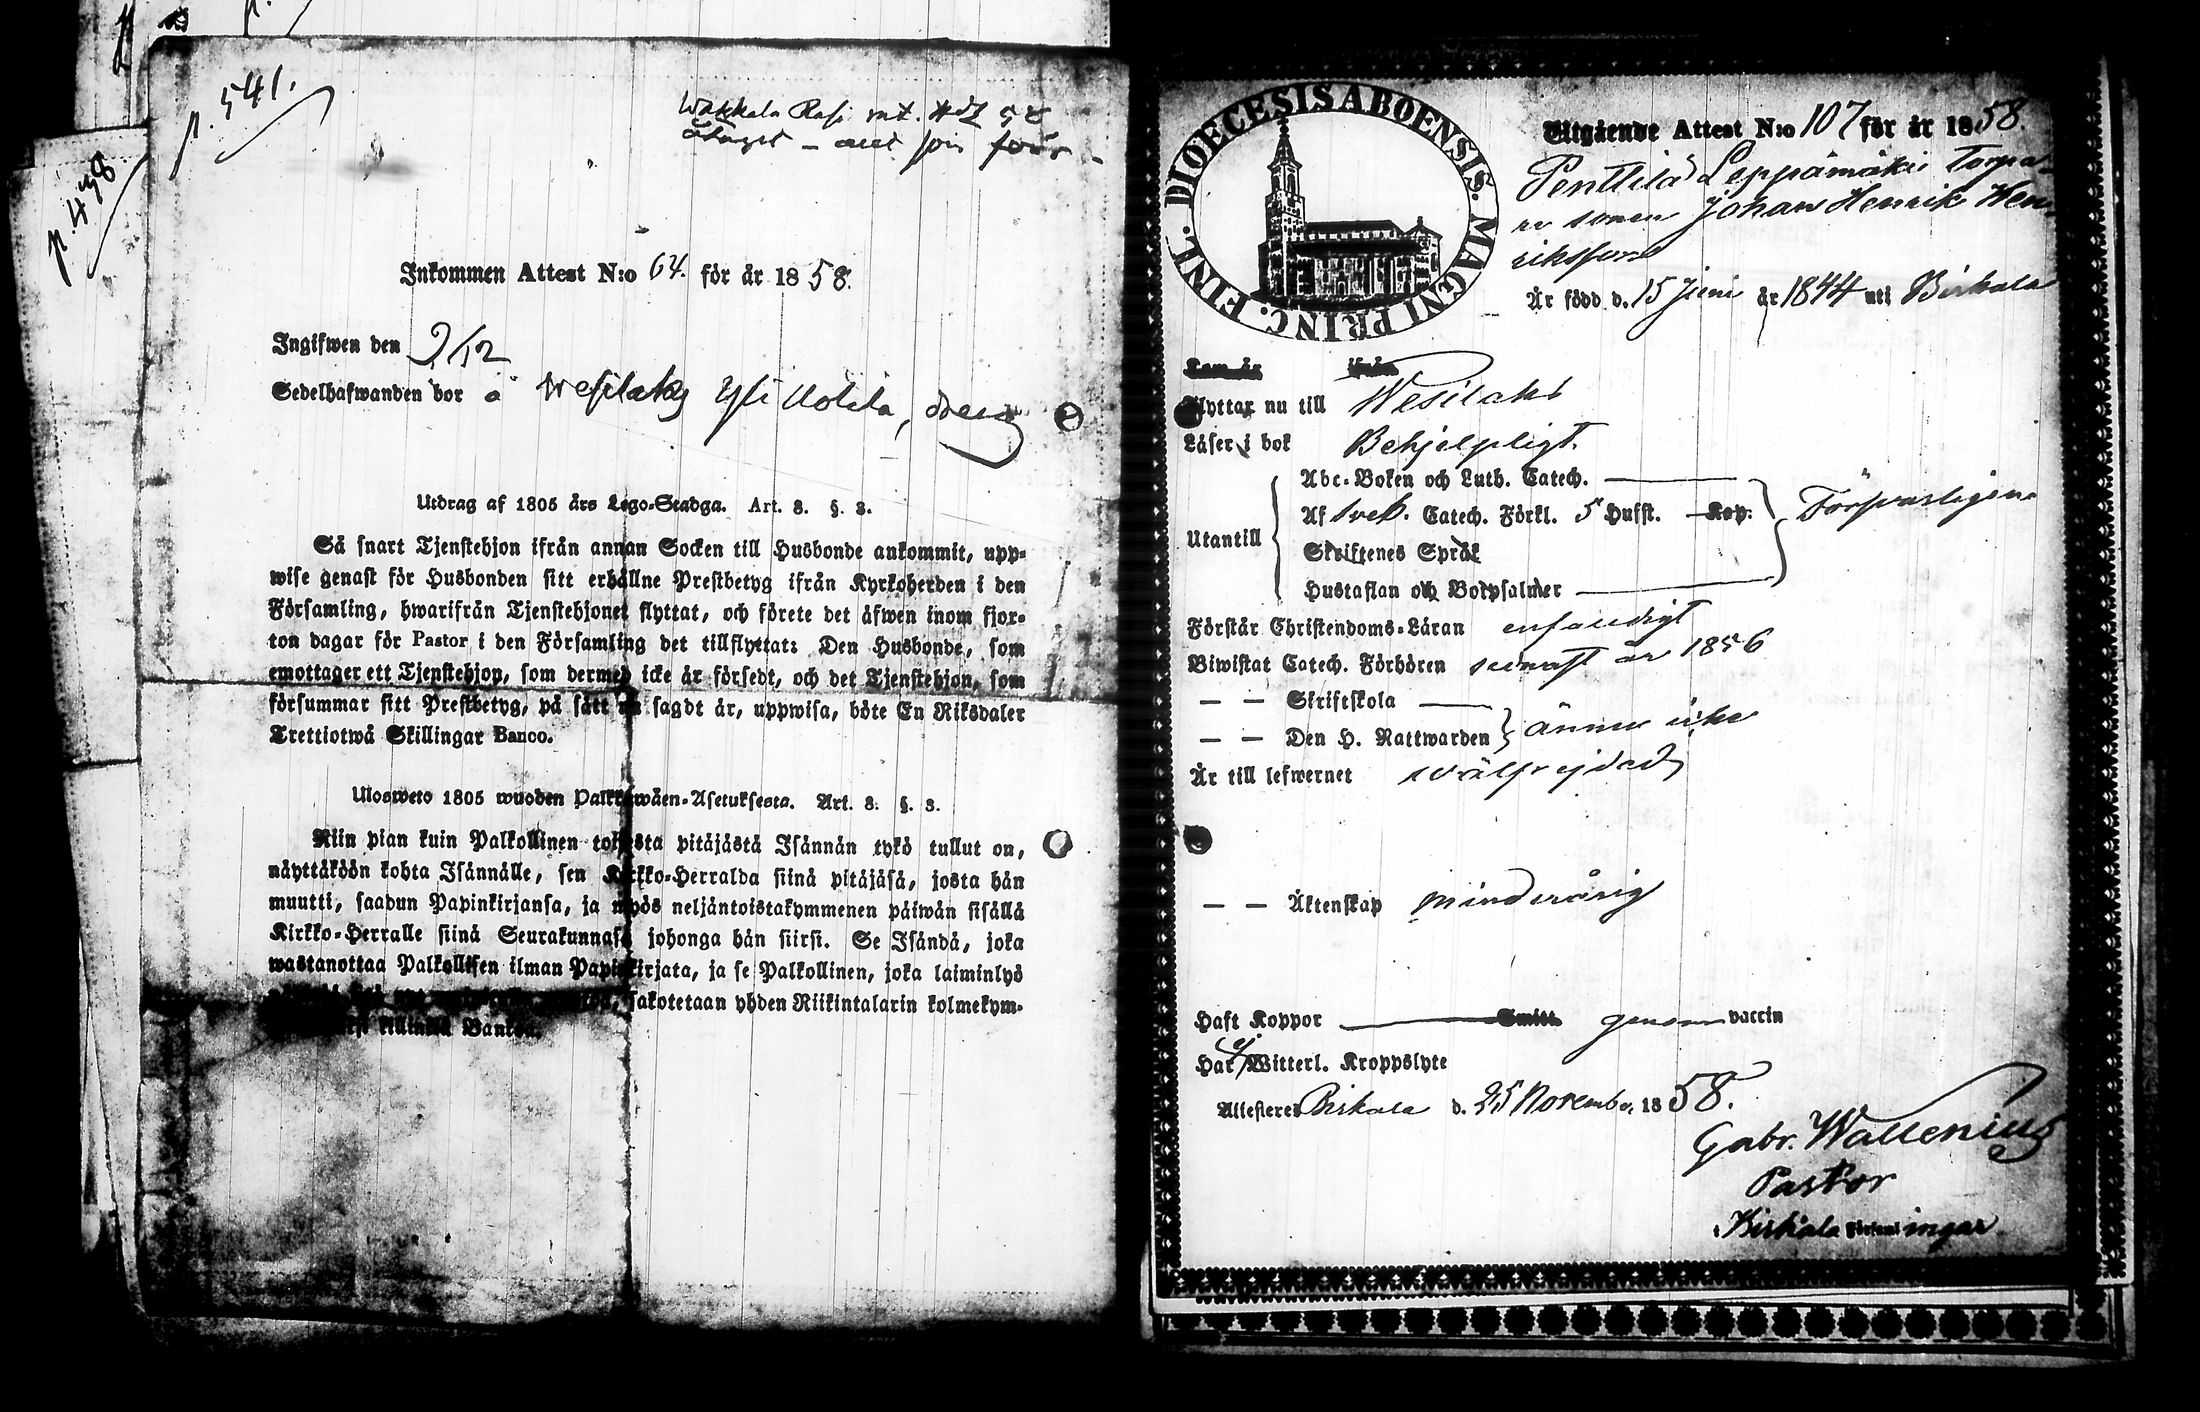 p. 541.
p. 438
Inkommen Attest N:o 64. för år 1858.
Ingifwen den 9/12
Sedelhafwanden bor å Wesilaks Yli Hokila, dreng
Utdrag af 1805 års Lego-Stadga. Art. 8. §. 3.
Så snart Tjenstehjon ifrån annan Socken till Husbonde ankommit, upp-
wise genast för Husbonden sitt erhållne Prestbetyg ifrån Kyrkoherden i den
Församling, hwarifrån Tjenstehjonet flyttat, och förete det äfwen inom fjor-
ton dagar för Pastor i den Församling det tillflyttat: Den Husbonde, som
emottager ett Tjenstehjon, som dermed icke är försedt, och det Tjenstehjon, som
försummar sitt Prestbetyg, på sätt nu sagdt är, uppwisa, böte En Riksdaler
Trettiotwå Skillingar Banco.
Ulosweto 1805 wuoden Palkkawäen-Asetuksesta. Art. 8. §. 3.
Niin pian kuin Palkollinen toisesta pitäjästä Isännän tykö tullut on,
näyttäköön kohta Isännälle, sen Kirkko-Herralda siinä pitäjäsä, josta hän
muutti, saadun Papinkirjansa, ja myös neljäntoistakymmenen päiwän sisällä
Kirkko-Herralle siinä Seurakunnasa johonga hän siirsi. Se Isändä, joka
wastanottaa Palkollisen ilman Papinkirjata, ja se Palkollinen, joka laiminlyö
sakotetaan yhden Riikintalarin kolmekym-
killingin Bankos.
DIOECESIS ABOENSIS. MAGNI PRINC. FINL.
Utgående Attest N:o 107 för år 1858.
Penttilä Leppämäki Torpa-
re sonen Johan Henrik Hen-
riksson
Är född d. 15 Juni år 1844 uti Birkala
Kom år ifrån
Flyttar nu till Wesilaks
Läser i bok Behjelpligt.
Utantill
Abc-Boken och Luth. Catech.
Af Sveb. Catech. Förkl. 5 Hufst. Kap.
Skriftenes Språk
Hustaflan och Botpsalmer
Försvarligen
Förstår Christendoms-Läran enfaldigt
Biwistat Catech. Förhören senast år 1856
— — Skriftskola
— — Den H. Nattwarden ännu icke
Är till lefwernet wälfrejdad
— — Äktenskap minderårig
Haft Koppor Smitt genom vaccin
Har ej Witterl. Kroppslyte
Attesteres Birkala d. 25 November 1858.
Gabr. Wallenius
Pastor
i Birkala Församlingar